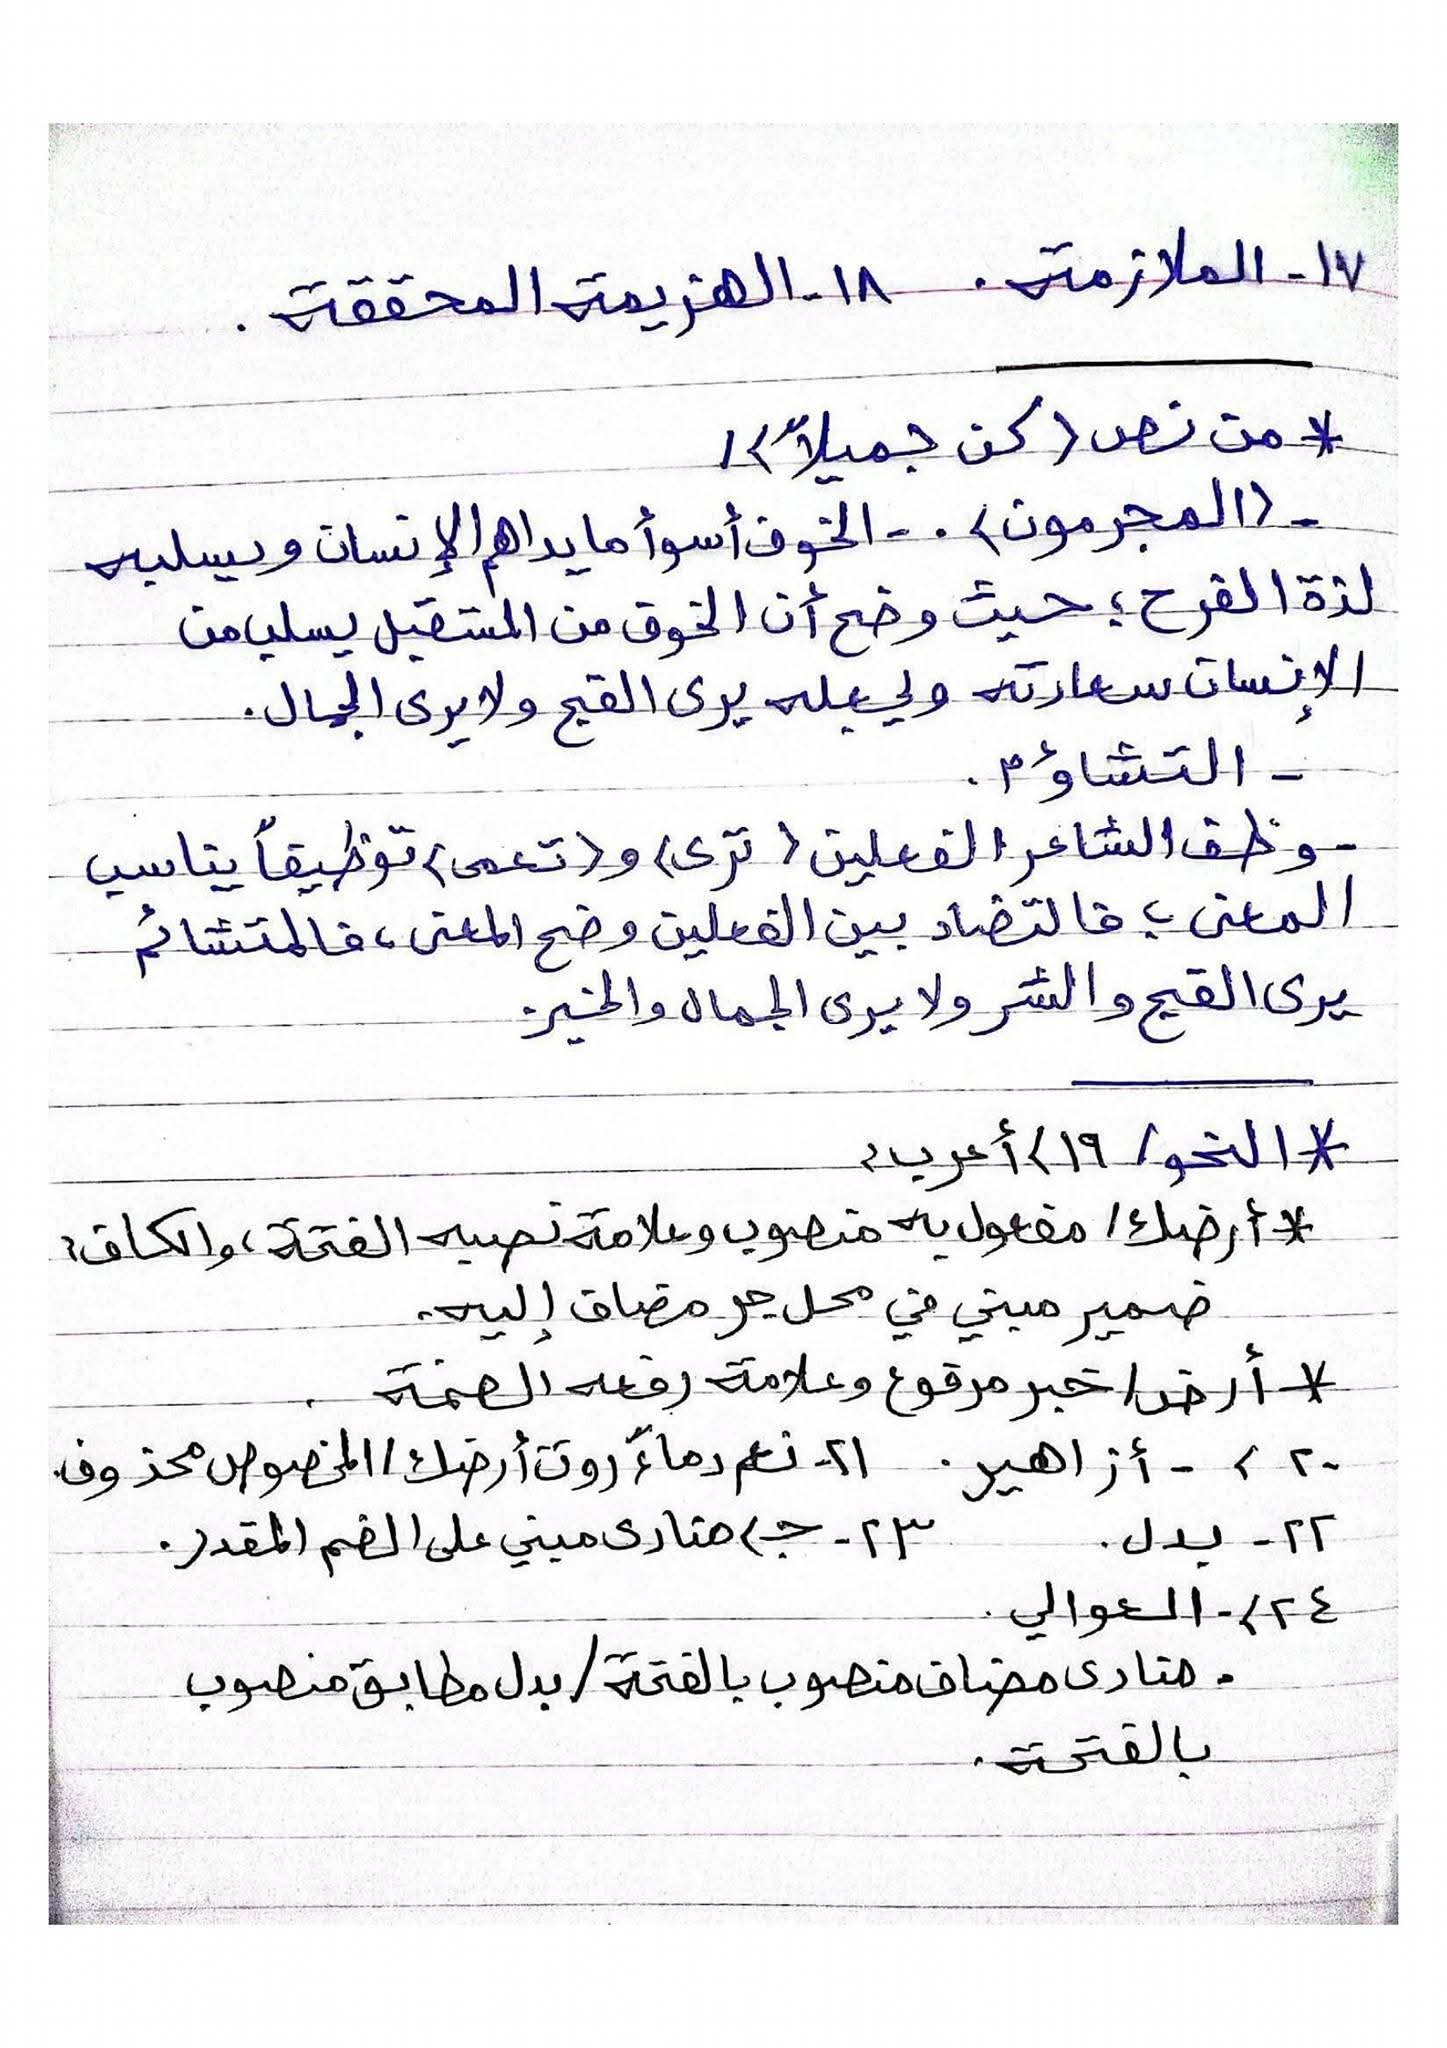 ١٧- الملازمة . ١٨- الهزيمة المحققة .
* من نص (كن جميلاً) /
- (المجرمون) . - الخوف أسوأ ما يداهم الإنسان ويسلبه
لذة الفرح ؛ حيث وضح أن الخوف من المستقبل يسلب من
الإنسان سعادته ويجعله يرى القبح ولا يرى الجمال .
- التشاؤم .
- وظف الشاعر الفعلين (ترى) و (تعمى) توظيفاً يناسب
المعنى ؛ فالتضاد بين الفعلين وضح المعنى ، فالمتشائم
يرى القبح والشر ولا يرى الجمال والخير .
* النحو / ١٩) أعرب :
* أرضك / مفعول به منصوب وعلامة نصبه الفتحة ، والكاف :
ضمير مبني في محل جر مضاف إليه .
* أرض / خبر مرفوع وعلامة رفعه الضمة .
٢٠) - أزاهير . ٢١- نعم دماءً روت أرضك / المخصوص محذوف .
٢٢- بدل . ٢٣- جـ) منادى مبني على الضم المقدر .
٢٤) - العوالي .
- منادى مضاف منصوب بالفتحة / بدل مطابق منصوب
بالفتحة .